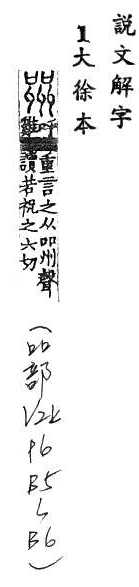 説文解字
1大徐本
喌 呼雞
重言之从吅州聲
讀若祝之六切
(吅部 p6 B5 B6)